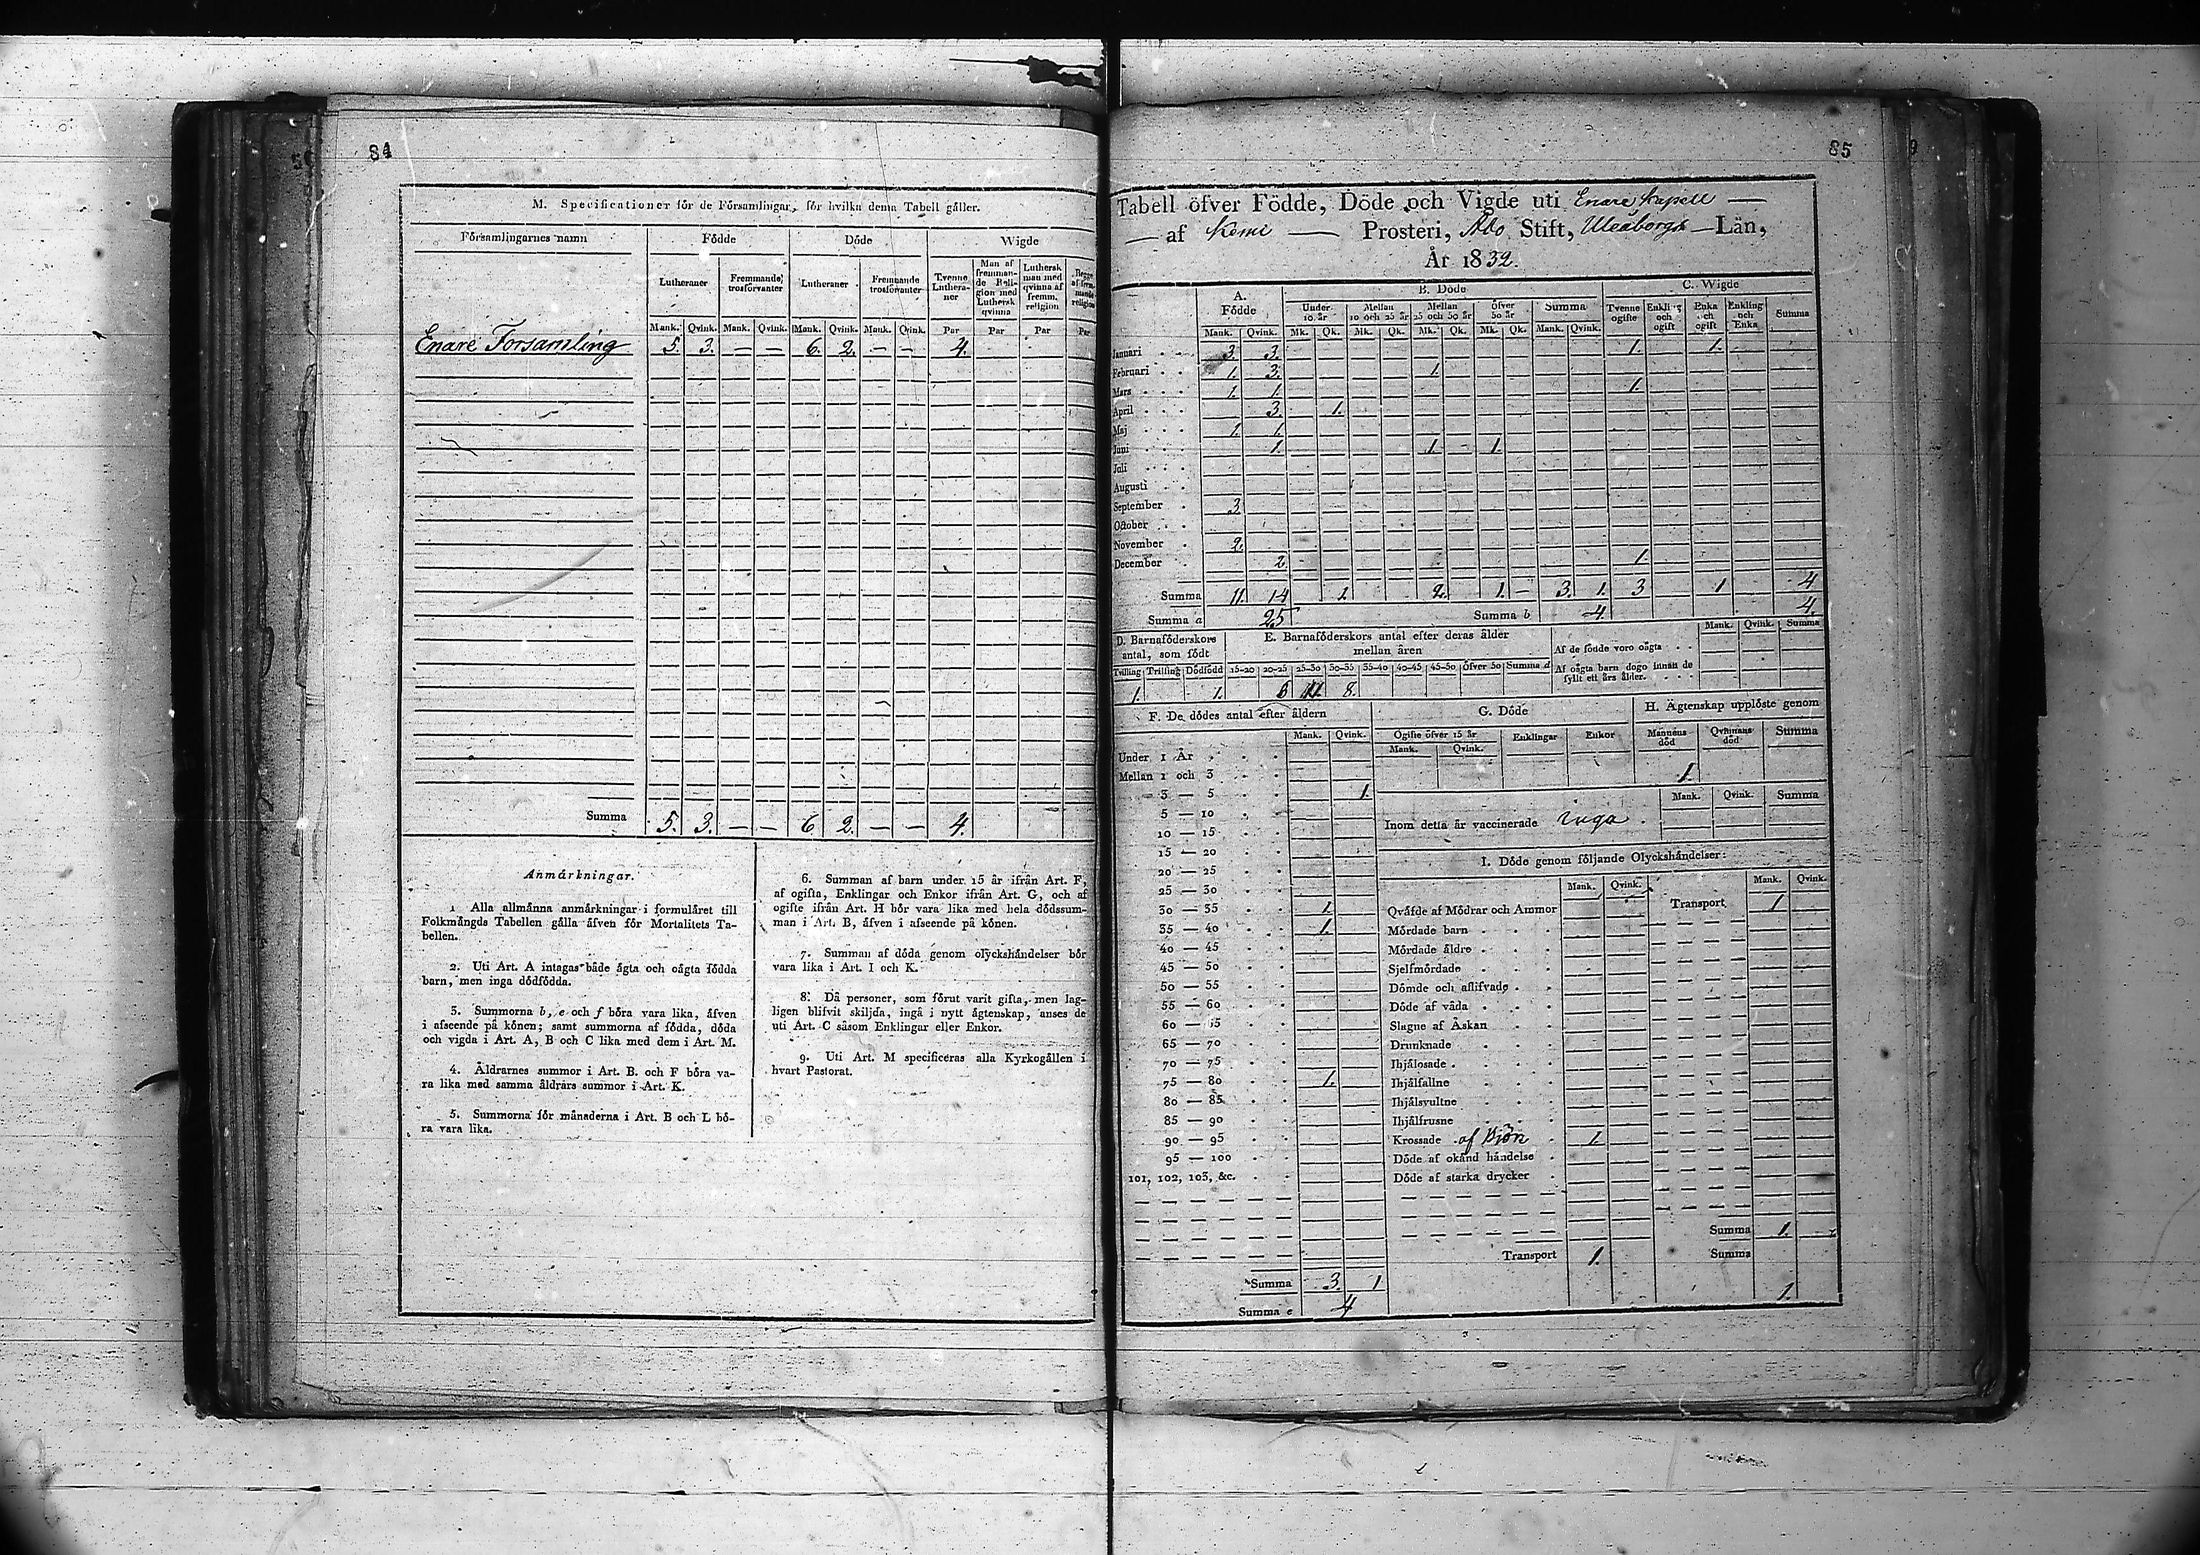 84
M. Specificationer för de Församlingar, för hvilka denna Tabell gäller.
Församlingarnes namn Födde Döde Wigde
Lutheraner Fremmande trosförvanter Lutheraner Fremmande trosförvanter Tvenne Lutheraner Man af fremmande Religion med Luthersk qvinna Luthersk man med qvinna af fremm. religion Begge af fremmande religion
Mank. Qvink. Mank. Qvink. Mank. Qvink. Mank. Qvink. Par Par Par Par
Enare Församling 5. 3. — — 6. 2. — — 4.
Summa 5. 3. — — 6 2. — — 4.
Anmärkningar.
1 Alla allmänna anmärkningar i formuläret till
Folkmängds Tabellen gälla äfven för Mortalitets Ta-
bellen.
2. Uti Art. A intagas både ägta och oägta födda
barn, men inga dödfödda.
3. Summorna b, e och f böra vara lika, äfven
i afseende på könen; samt summorna af födda, döda
och vigda i Art. A, B och C lika med dem i Art. M.
4. Åldrarnes summor i Art. B. och F böra va-
ra lika med samma åldrars summor i Art. K.
5. Summorna för månaderna i Art. B och L bö-
ra vara lika.
6. Summan af barn under 15 år ifrån Art. F,
af ogifta, Enklingar och Enkor ifrån Art. G, och af
ogifte ifrån Art. H bör vara lika med hela dödssum-
man i Art. B, äfven i afseende på könen.
7. Summan af döda genom olyckshändelser bör
vara lika i Art. I och K.
8. Då personer, som förut varit gifta, men lag-
ligen blifvit skiljda, ingå i nytt ägtenskap, anses de
uti Art. C såsom Enklingar eller Enkor.
9. Uti Art. M specificeras alla Kyrkogällen i
hvart Pastorat.
85
Tabell öfver Födde, Döde och Vigde uti Enare Kapell —
— af Kemi — Prosteri, Åbo Stift, Uleåborgs — Län,
År 1832.
A. Födde B. Döde C. Wigde
Under 10 år Mellan 10 och 25 år Mellan 25 och 50 år öfver 50 år Summa Tvenne ogifte Enkling och ogift Enka och ogift Enkling och Enka Summa
Mank. Qvink. Mk. Qk. Mk. Qk. Mk. Qk. Mk. Qk. Mank. Qvink.
Januari 3. 3. 1. 1.
Februari 1. 3. 1.
Mars 1. 1. 1.
April 3. 1.
Maj 1. 1.
Juni 1. 1. - 1.
Juli
Augusti
September 3.
October
November 2.
December 2. 1.
Summa 11. 14 1. 2. 1. — 3. 1. 3 1 4
Summa a 25 Summa b 4 4.
D. Barnaföderskors antal, som födt E. Barnaföderskors antal efter deras ålder mellan åren Mank. Qvink. Summa
Af de födde voro oägta
Af oägta barn dogo innan de fyllt ett års ålder.
Tvilling Trilling Dödfödd 15-20 20-25 25-30 30-35 35-40 40-45 45-50 Öfver 50 Summa d
1. 1. 6 11. 8.
F. De dödes antal efter åldern G. Döde H. Ägtenskap upplöste genom
Mank. Qvink. Ogifte öfver 15 år Enklingar Enkor Mannens död Qvinnans död Summa
Mank. Qvink.
Under 1 År
Mellan 1 och 3 1.
3 — 5 1.
Mank. Qvink. Summa
5 — 10
Inom detta år vaccinerade inga.
10 — 15
15 — 20
I. Döde genom följande Olyckshändelser:
20 — 25
Mank. Qvink. Mank. Qvink.
25 — 30
30 — 35 1. Qväfde af Mödrar och Ammor Transport 1
35 — 40 1. Mördade barn
40 — 45 Mördade äldre
45 — 50 Sjelfmördade
50 — 55 Dömde och aflifvade
55 — 60 Döde af våda
60 — 65 Slagne af Åskan
65 — 70 Drunknade
70 — 75 Ihjälosade
75 — 80 1. Ihjälfallne
80 — 85 Ihjälsvultne
85 — 90 Ihjälfrusne
90 — 95 Krossade af Björn 1.
95 — 100 Döde af okänd händelse
101, 102, 103, &c. Döde af starka drycker
Summa 1.
Transport 1. Summa
Summa 3. 1 1.
Summa e 4